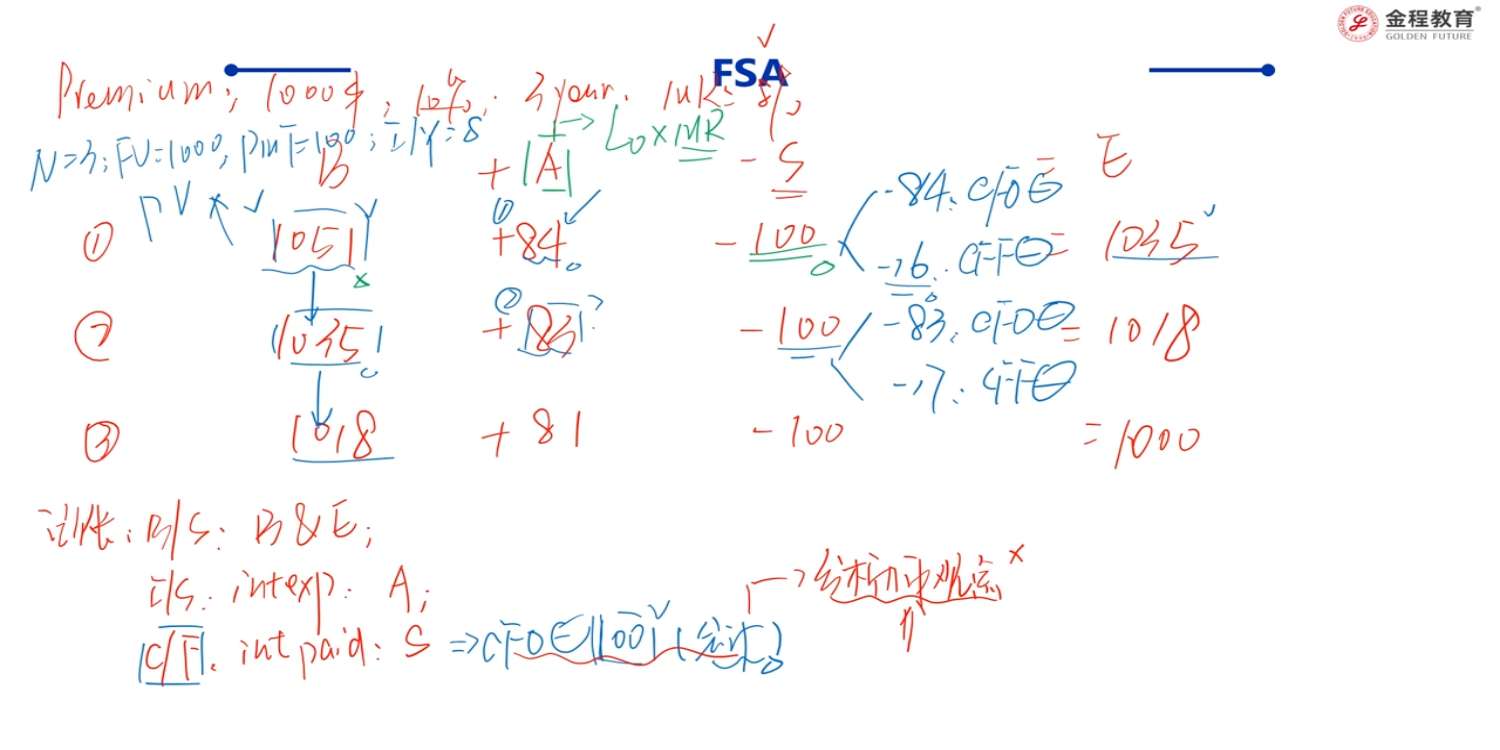 金程教育
GOLDEN FUTURE
FSA
Premium: 1000$, 10%, 3 year. MR= 8%
N=3; FV=1000, PMT=100; I/Y=8
→ L0×MR
B + |A| - S = E
PV
① 1051 ① +84 - 100 -84. CFO㊀ = 1035
-16. CFF㊀
② 1035 ② +83? - 100 -83. CFO㊀ = 1018
-17. CFF㊀
③ 1018 + 81 - 100 = 1000
记账: B/S: B & E;
I/S. int exp: A;
C/F. int paid: S ⇒ CFO㊀|100| (会计) → 分析师观点 ×